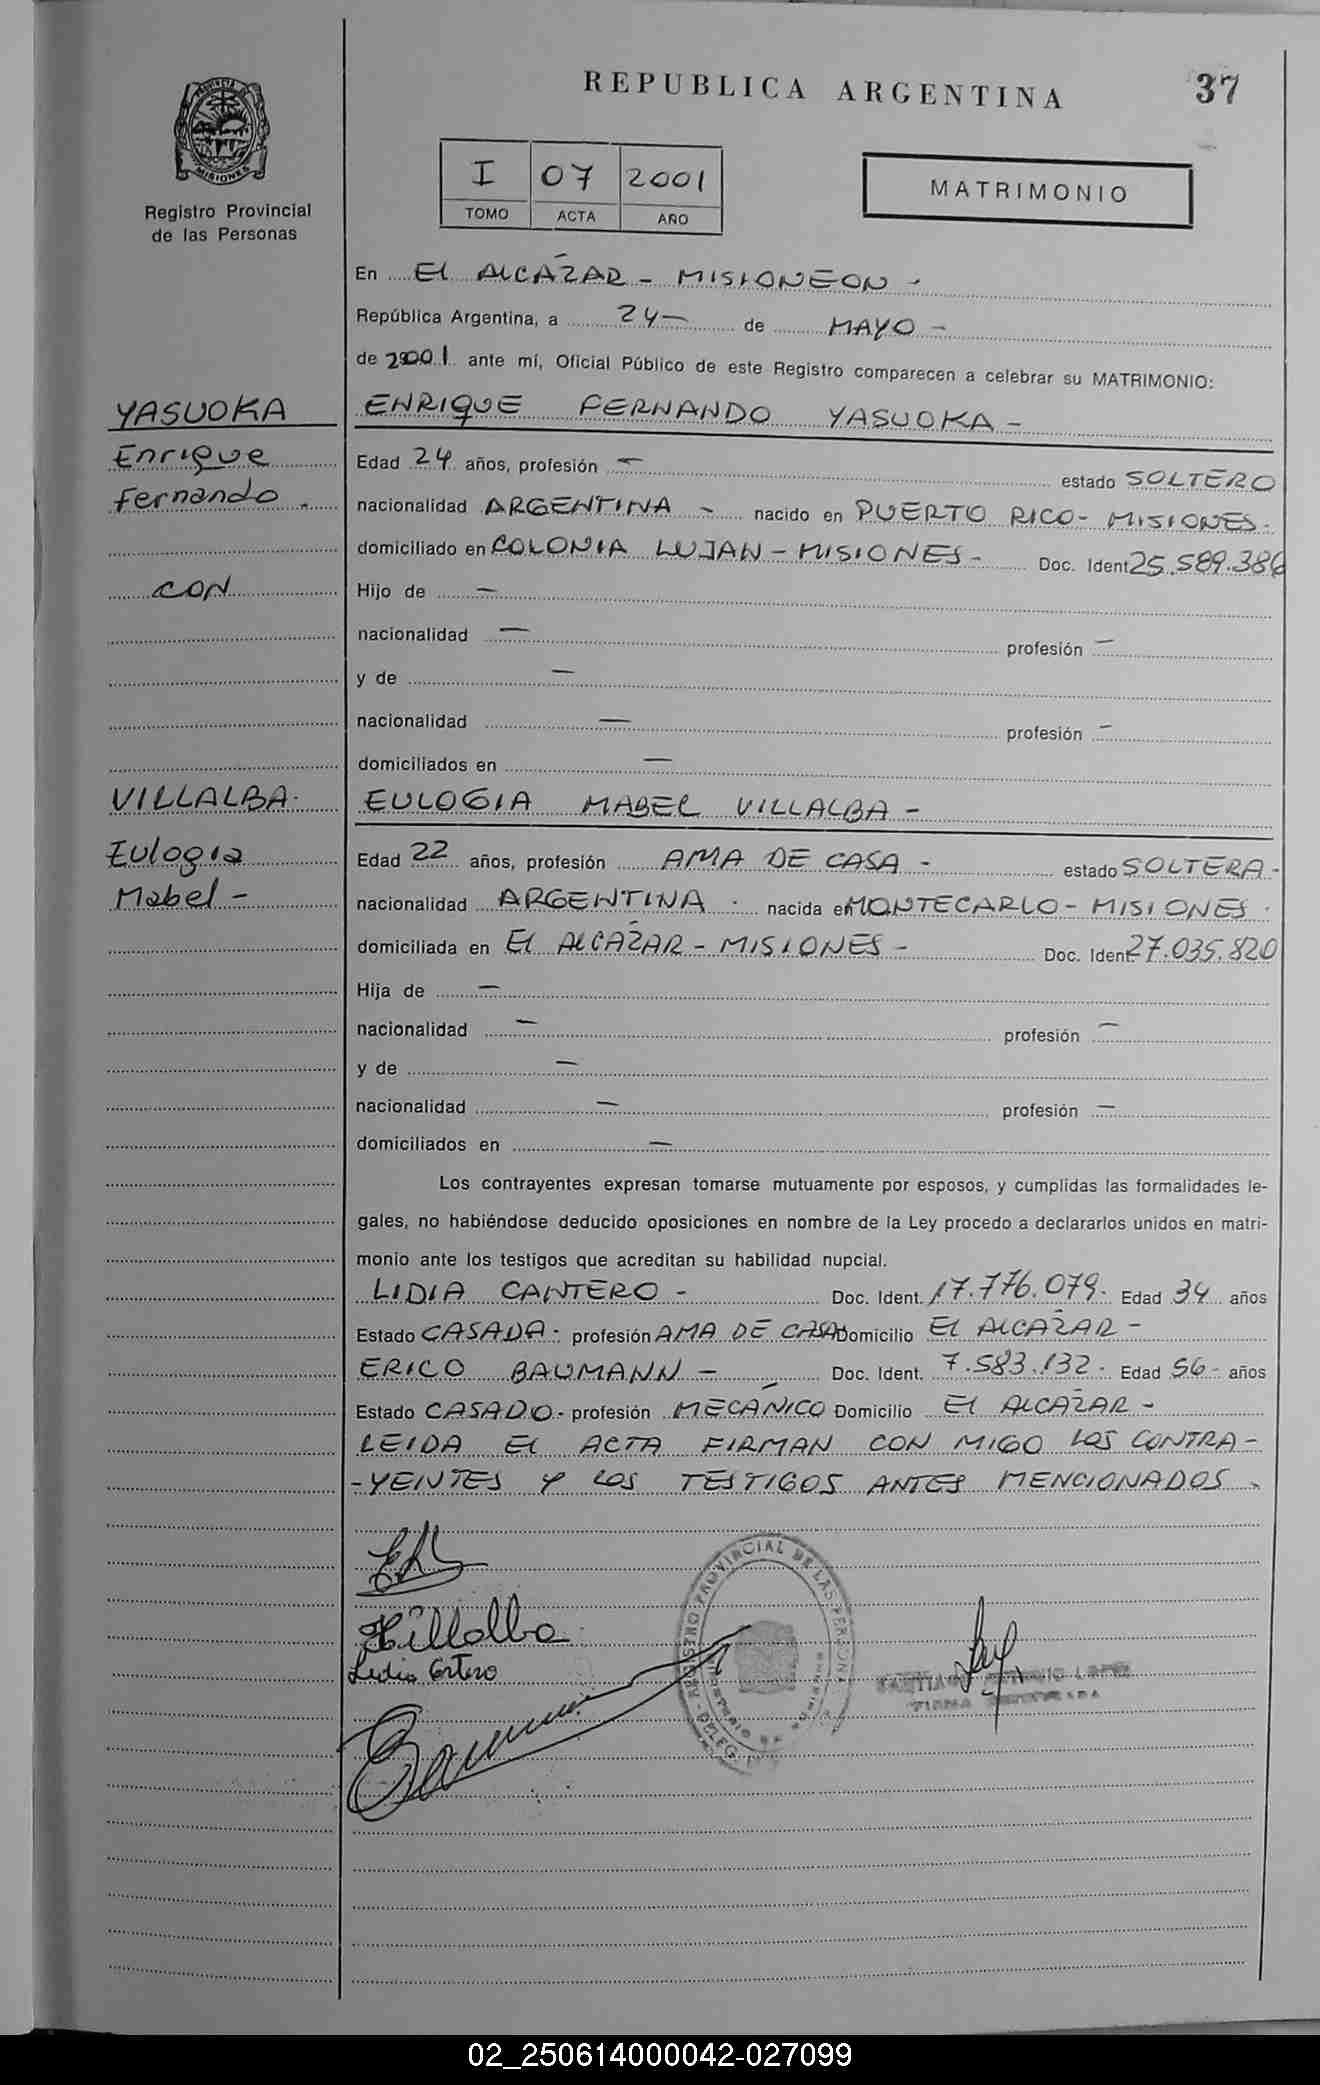 REPUBLICA ARGENTINA
37
PROVINCIA DE
MISIONES
Registro Provincial
de las Personas
I 07 2001
TOMO ACTA AÑO
MATRIMONIO
En El ALCÁZAR - MISIONEON -
República Argentina, a 24 - de MAYO -
de 2001 ante mí, Oficial Público de este Registro comparecen a celebrar su MATRIMONIO:
YASUOKA
Enrique
Fernando.
CON
ENRIQUE FERNANDO YASUOKA -
Edad 24 años, profesión - estado SOLTERO
nacionalidad ARGENTINA - nacido en PUERTO RICO - MISIONES -
domiciliado en COLONIA LUJAN - MISIONES - Doc. Ident 25.589.386
Hijo de -
nacionalidad - profesión -
y de -
nacionalidad - profesión -
domiciliados en -
VILLALBA.
Eulogia
Mabel -
EULOGIA MABEL VILLALBA -
Edad 22 años, profesión AMA DE CASA - estado SOLTERA -
nacionalidad ARGENTINA . nacida en MONTECARLO - MISIONES .
domiciliada en El ALCÁZAR - MISIONES - Doc. Ident 27.035.820
Hija de -
nacionalidad - profesión -
y de -
nacionalidad - profesión -
domiciliados en -
Los contrayentes expresan tomarse mutuamente por esposos, y cumplidas las formalidades le-
gales, no habiéndose deducido oposiciones en nombre de la Ley procedo a declararlos unidos en matri-
monio ante los testigos que acreditan su habilidad nupcial.
LIDIA CANTERO - Doc. Ident. 17.776.079. Edad 34 años
Estado CASADA. profesión AMA DE CASA Domicilio El ALCÁZAR -
ERICO BAUMANN - Doc. Ident. 7.583.132. Edad 56 - años
Estado CASADO. profesión MECÁNICO Domicilio El ALCÁZAR -
LEIDA El ACTA FIRMAN CON MIGO LOS CONTRA-
-YENTES Y LOS TESTIGOS ANTES MENCIONADOS.
Villalba
REGISTRO PROVINCIAL DE LAS PERSONAS
DELEG.
02_250614000042-027099